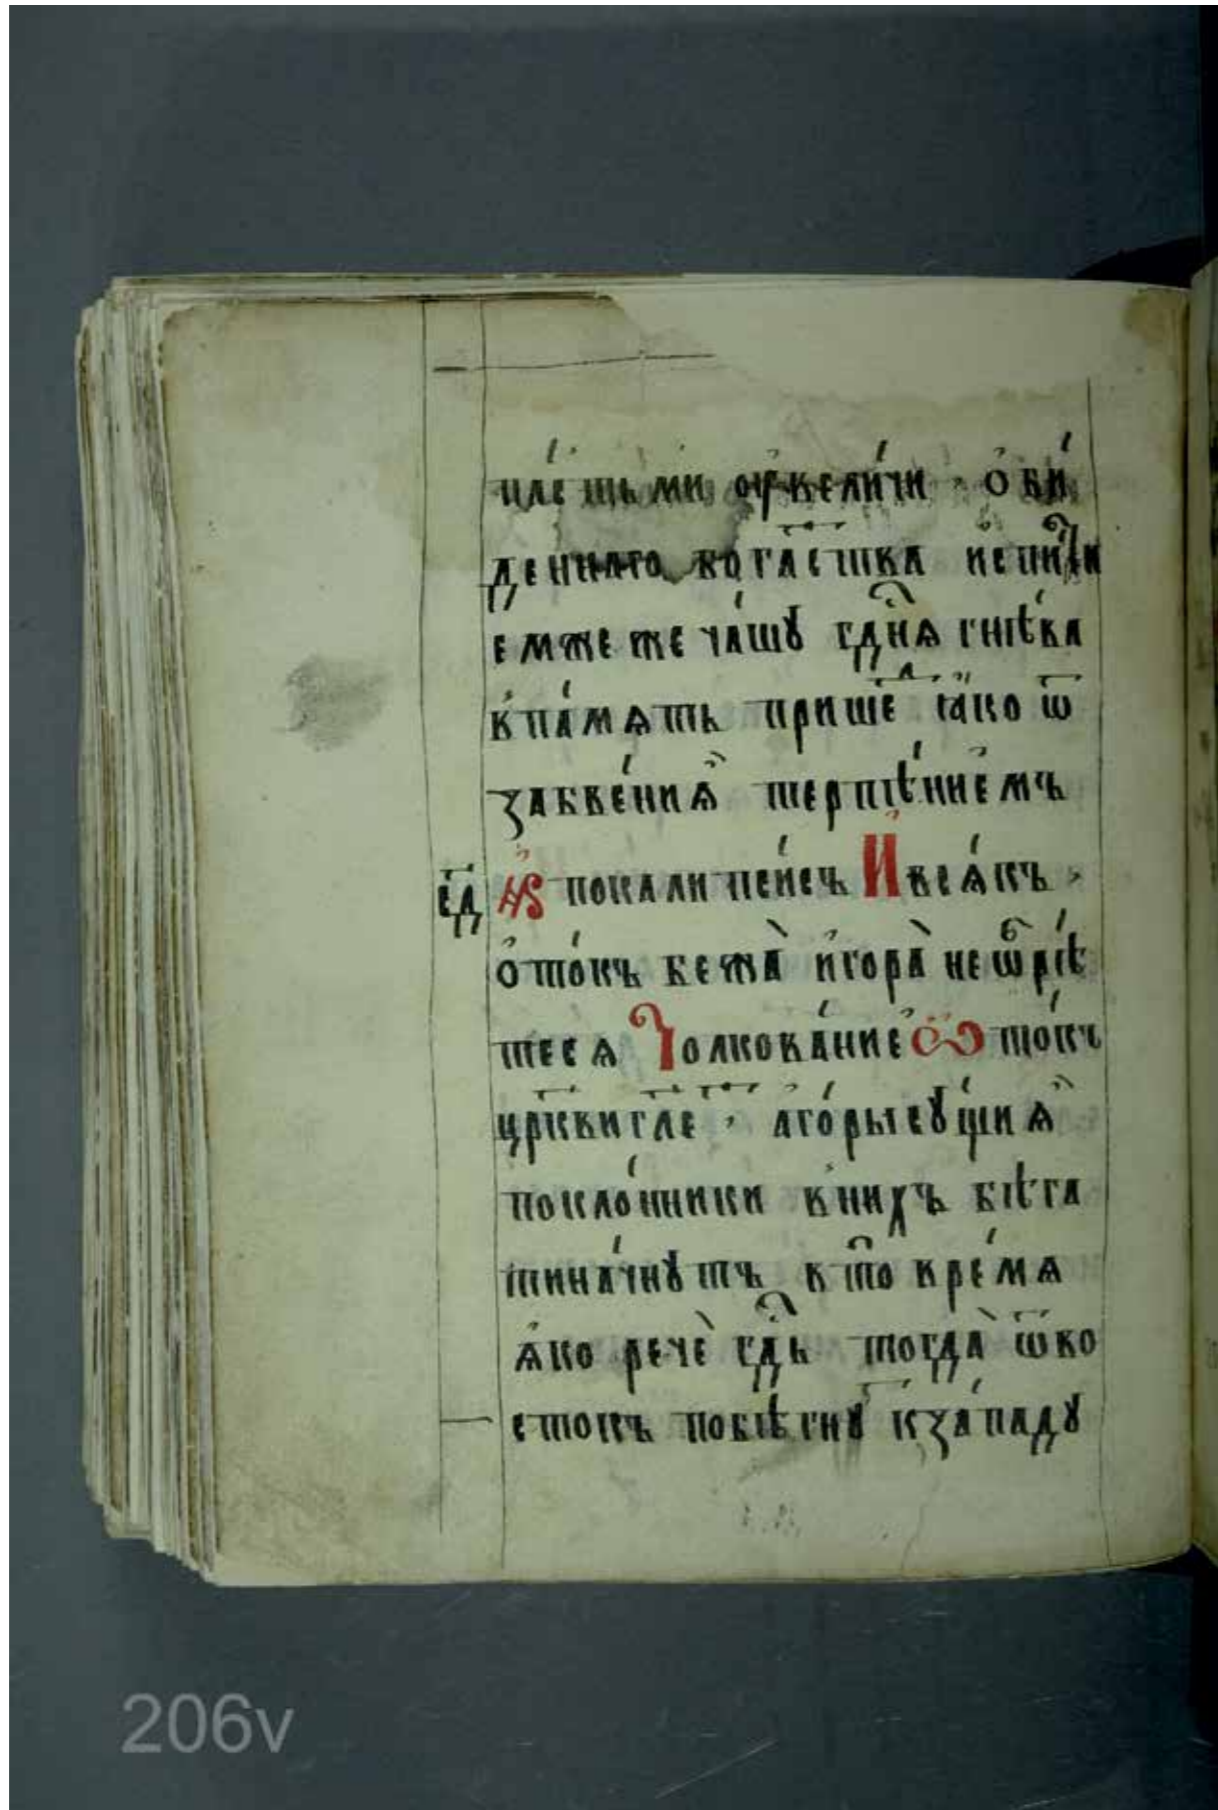 пастьми ѹ҆вели́чи. ѻ҆би́
деннаго бога́ства и҆спи́ти
емже же ча́шꙋ гдⷭ҇нѧ гнѣ́ва
в̾па́мѧть прише ꙗ҆ко ѿ
забве́ниѧ терпѣ́ниемъ
е҃д А҆покали́пеисъ И҆всѧ́къ,
ѻ҆то́къ бежа̀ и҆гора̀ неѡ҆брѣ́
тесѧ Толкова́ние Ѡ҆то́къ
цр҃кви гл҃е, аго́ры сꙋ́щиѧ
покло́нники в̾нихъ бѣ́га
тиначнꙋ́тъ в̾то вре́мѧ
ꙗ҆ко речѐ гдⷭ҇ь тогда̀ ѿво
стокъ побѣ́гнꙋ к̾за́падꙋ
206v